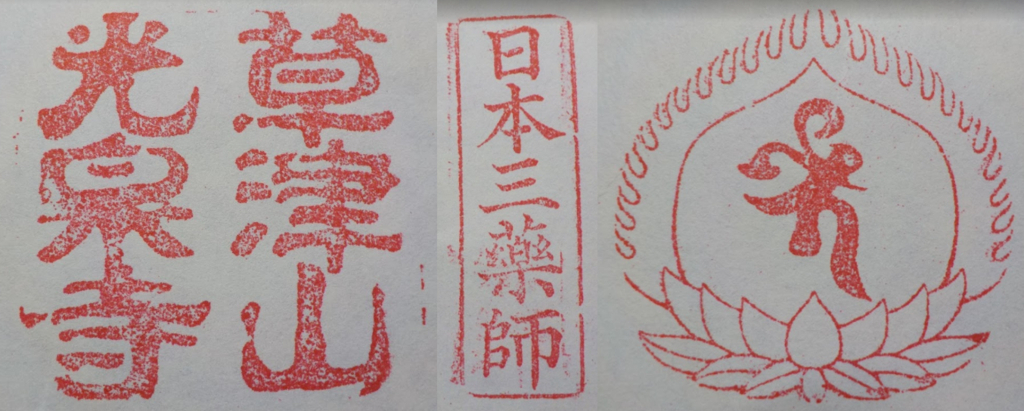 草津山
光泉寺
日本三藥師